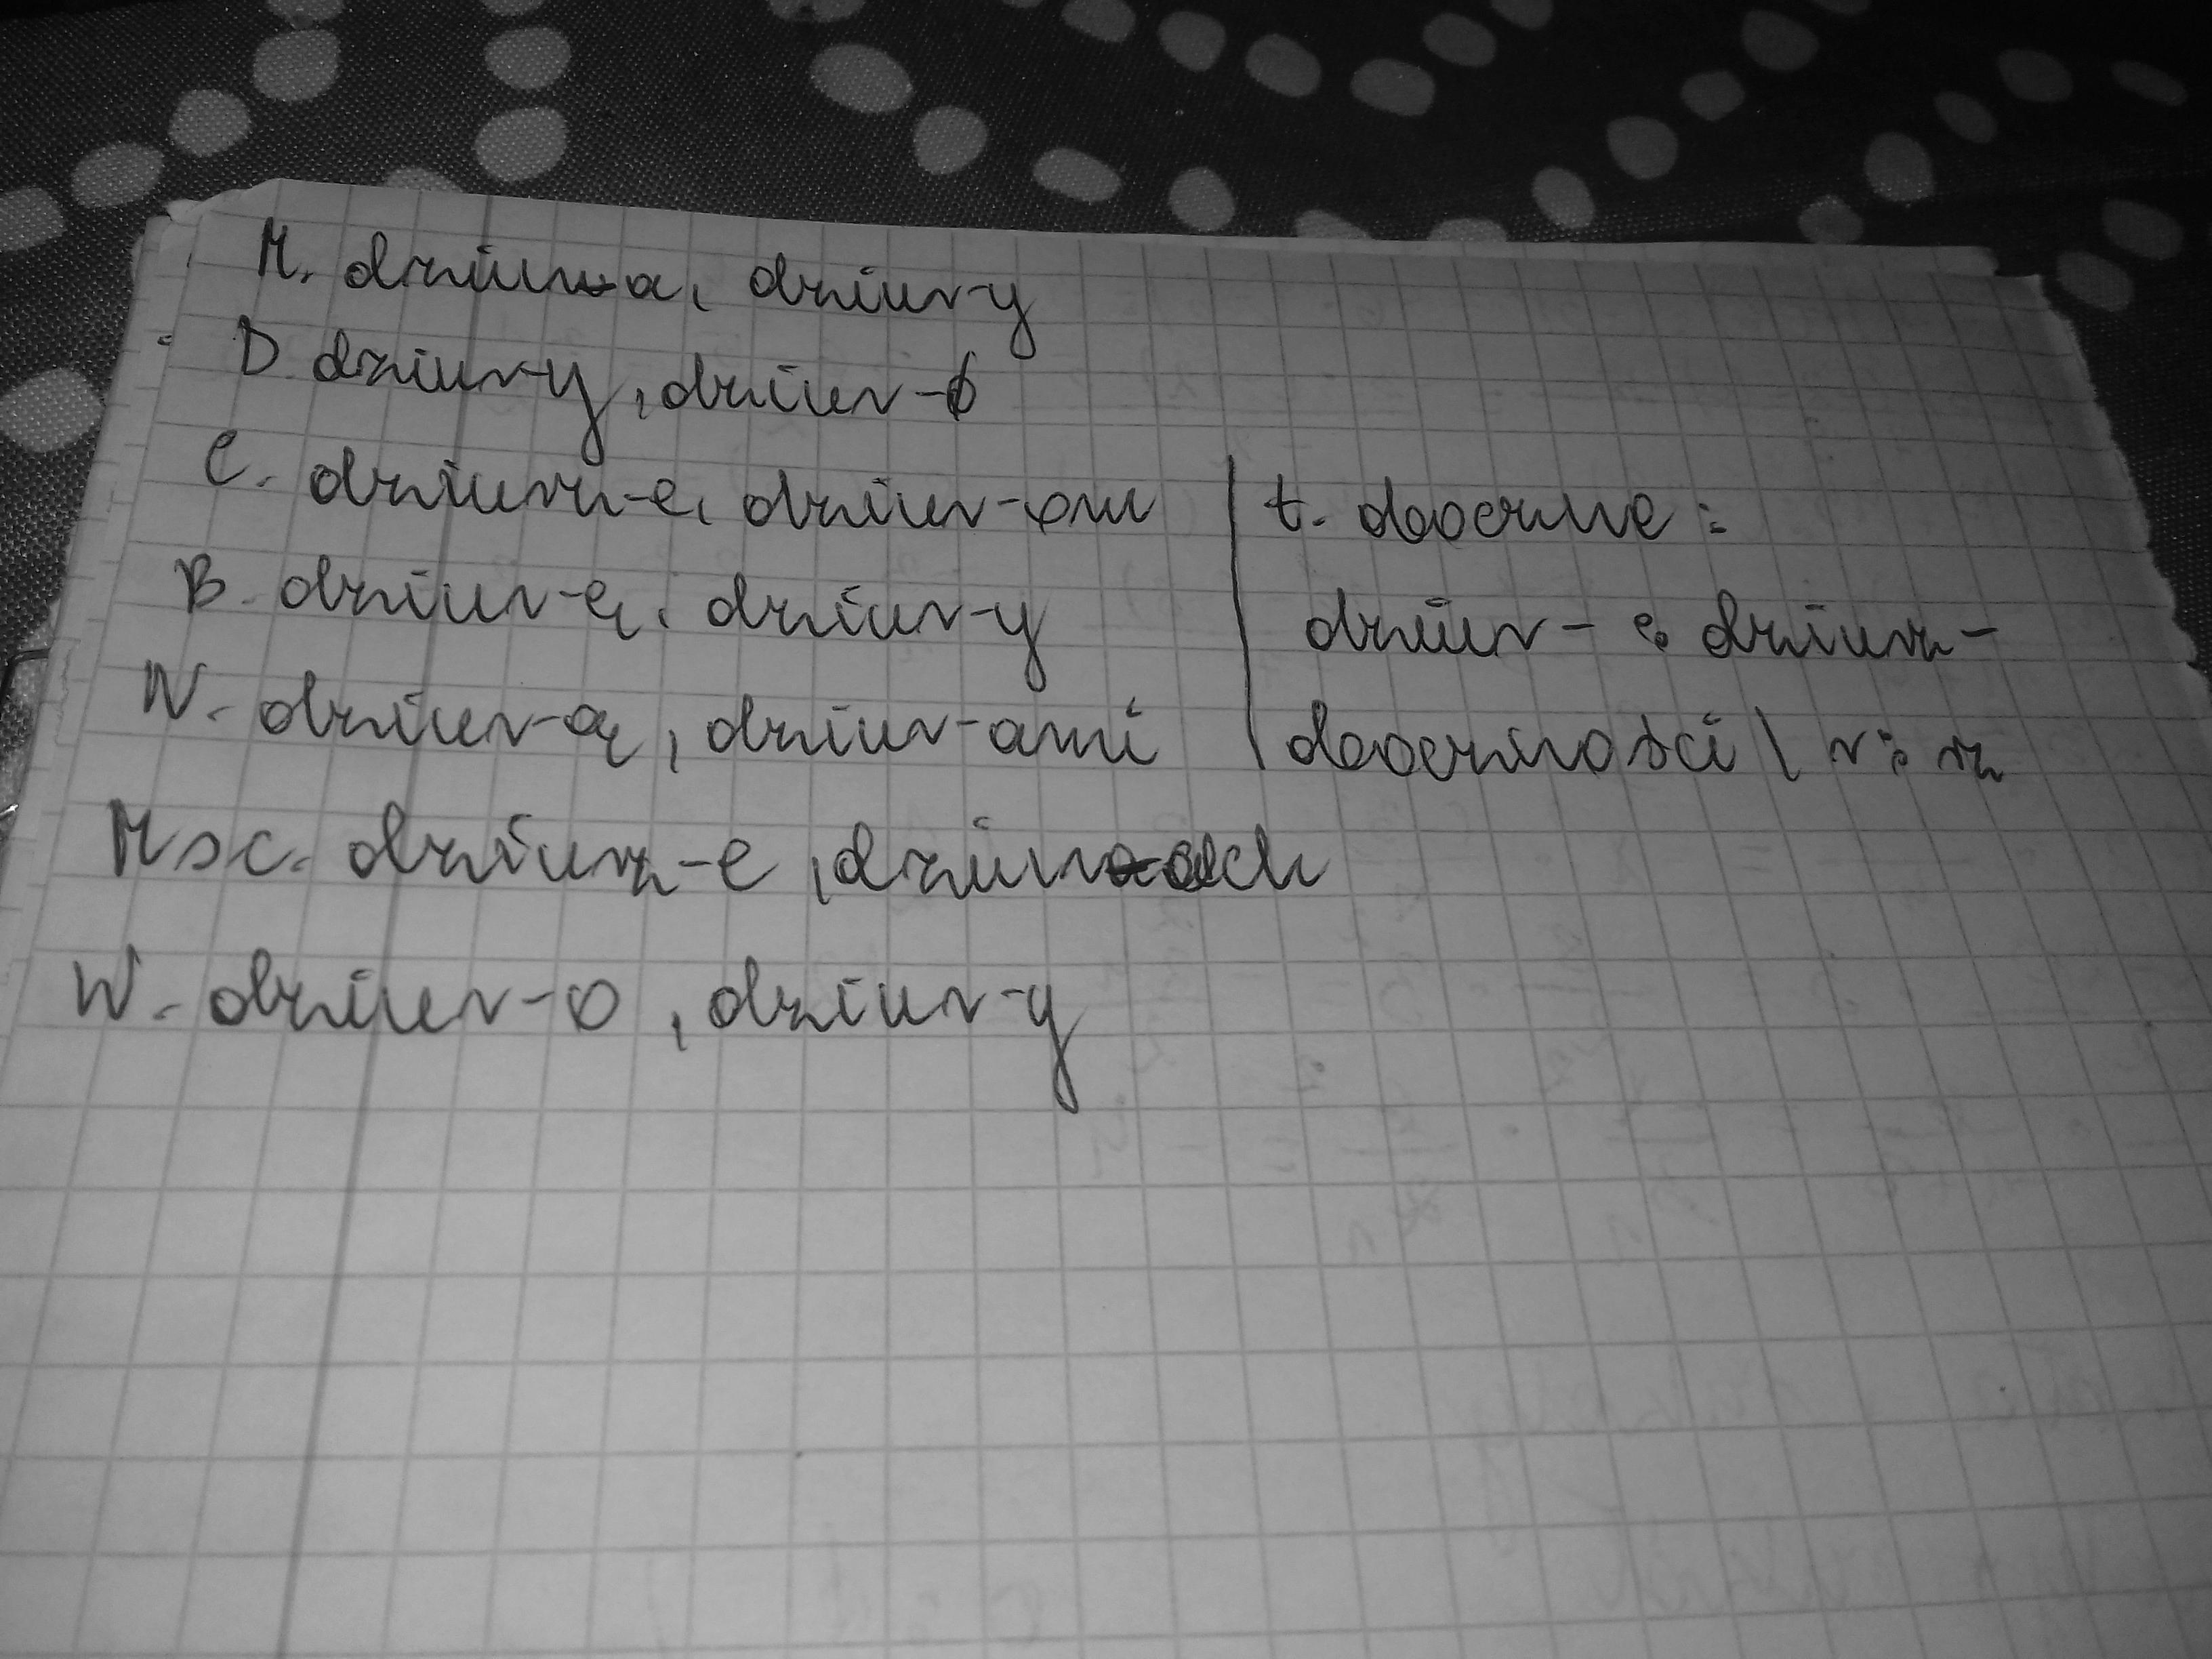 M. dziur-a, dziur-y
D. dziur-y, dziur-ϕ
C. dziurz-e, dziur-om
B. dziur-ę, dziur-y
N. dziur-ą, dziur-ami
Msc. dziurz-e, dziur-ach
W. dziur-o, dziur-y
t. oboczne:
dziur- : dziurz-
oboczności | r : rz